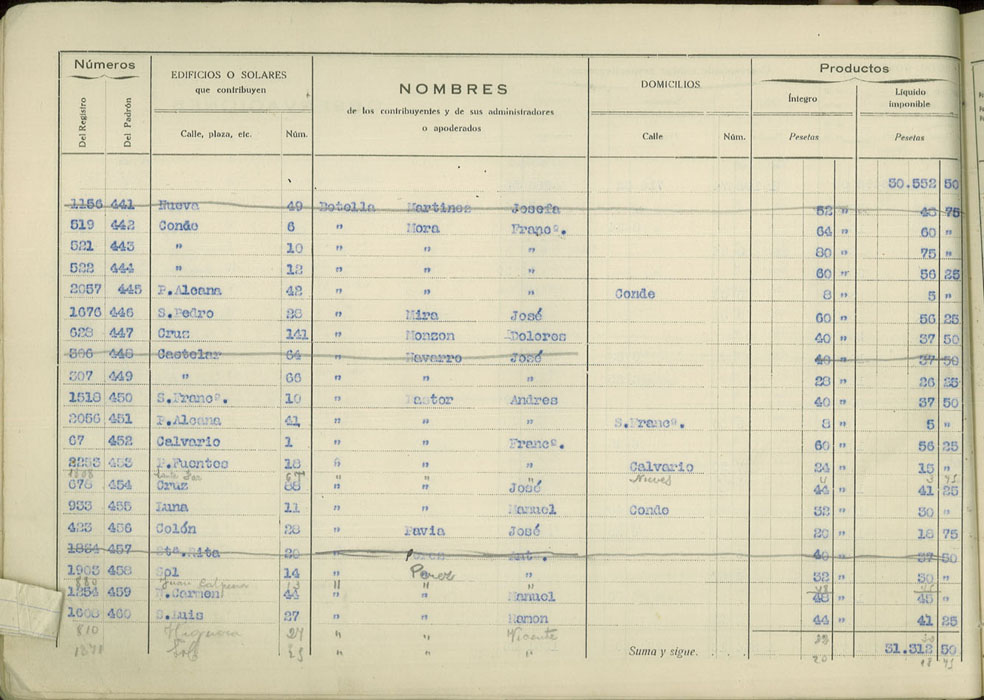 Números
EDIFICIOS O SOLARES
que contribuyen
NOMBRES
de los contribuyentes y de sus administradores
o apoderados
DOMICILIOS
Productos
Del Registro
Del Padrón
Calle, plaza, etc.
Núm.
Calle
Núm.
Íntegro
Pesetas
Líquido
imponible
Pesetas
30.552 50
1156 441 Nueva 49 Botella Martinez Josefa 52 " 48 75
519 442 Conde 6 " Mora Francº. 64 " 60 "
521 443 " 10 " " " 80 " 75 "
522 444 " 12 " " " 60 " 56 25
2057 445 P.Alcana 42 " " " Conde 8 " 5 "
1676 446 S.Pedro 28 " Mira José 60 " 56 25
628 447 Cruz 141 " Monzon Dolores 40 " 37 50
306 448 Castelar 64 " Navarro José 40 " 37 50
307 449 " 66 " " " 28 " 26 25
1518 450 S.Francº. 10 " Pastor Andres 40 " 37 50
2056 451 P.Alcana 41 " " " S.Francº. 8 " 5 "
67 452 Calvario 1 " " Francº. 60 " 56 25
2253 453 P.Fuentes 18 " " " Calvario 24 " 15 "
" " " Nueves
678 454 Cruz 88 " " José 44 " 41 25
933 455 Luna 11 " " Manuel Conde 32 " 30 "
423 456 Colón 28 " Pavia José 20 " 18 75
1834 457 Stª.Rita 20 " Perez Antº. 40 " 37 50
1903 458 Sol 14 " Perez " 32 " 30 "
880 Juan 13 " " "
1254 459 N.Carmen 44 " " Manuel 48 " 45 "
1608 460 S.Luis 27 " " Ramon 44 " 41 25
810 Higuera 27 " " Vicente
1871 Sol 25 " " "
Suma y sigue. 31.312 50
20 18 75